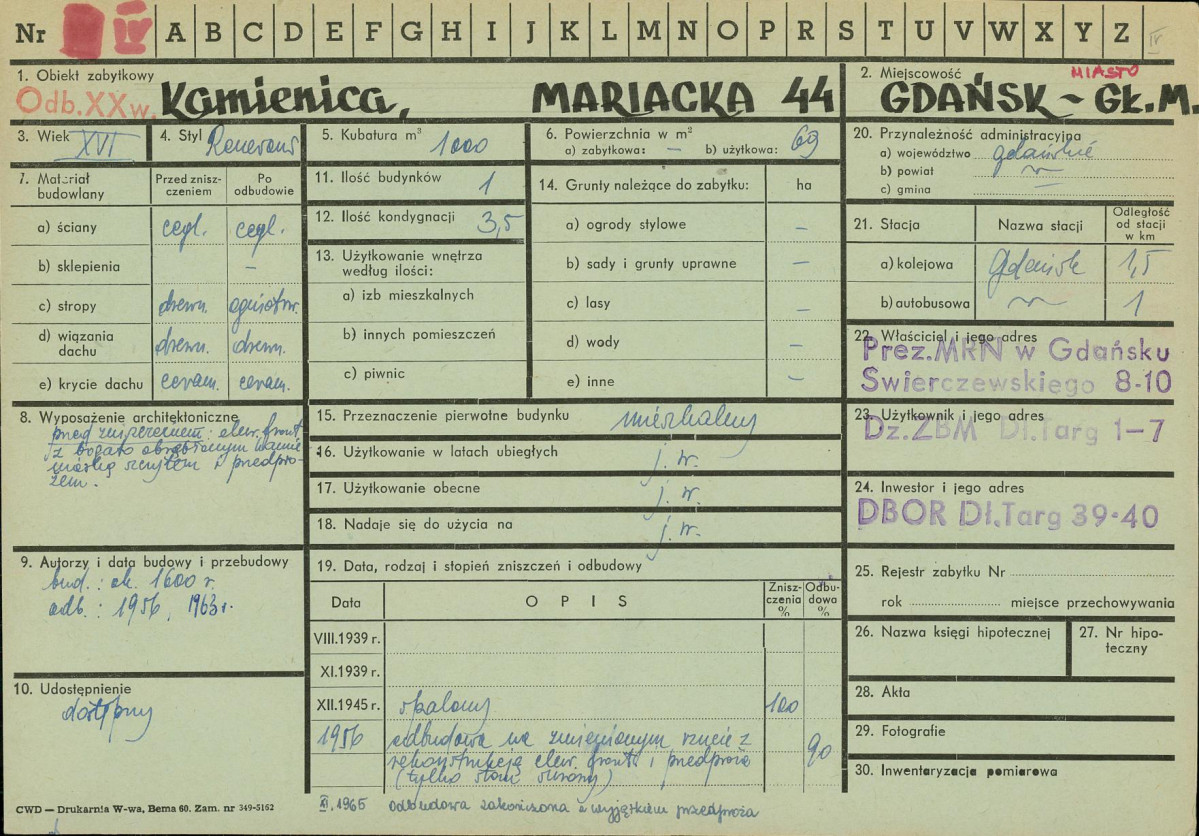 Nr A B C D E F G H I J K L M N O P R S T U V W X Y Z IV
1. Obiekt zabytkowy
Odb.XXw. Kamienica, MARIACKA 44
2. Miejscowość MIASTO
GDAŃSK - GŁ.M.
3. Wiek XVI
4. Styl Renesans
5. Kubatura m³ 1000
6. Powierzchnia w m²
a) zabytkowa: — b) użytkowa: 69
7. Materiał budowlany
Przed zniszczeniem
Po odbudowie
a) ściany cegl. cegl.
b) sklepienia —
c) stropy drewn. ogniotrw.
d) wiązania dachu drewn. drewn.
e) krycie dachu ceram. ceram.
8. Wyposażenie architektoniczne
przed zniszczeniem: elew. front.
z bogato obrobionym kamie
niarką szczytem i przedpro-
żem.
9. Autorzy i data budowy i przebudowy
bud.: ok. 1600 r.
odb.: 1956, 1963 r.
10. Udostępnienie
dostępny
11. Ilość budynków 1
12. Ilość kondygnacji 3,5
13. Użytkowanie wnętrza
według ilości:
a) izb mieszkalnych
b) innych pomieszczeń
c) piwnic
14. Grunty należące do zabytku: ha
a) ogrody stylowe —
b) sady i grunty uprawne —
c) lasy —
d) wody —
e) inne —
15. Przeznaczenie pierwotne budynku mieszkalny
16. Użytkowanie w latach ubiegłych j. w.
17. Użytkowanie obecne j. w.
18. Nadaje się do użycia na j. w.
19. Data, rodzaj i stopień zniszczeń i odbudowy
Data OPIS Zniszczenia % Odbudowa %
VIII.1939 r.
XI.1939 r.
XII.1945 r. spalony 100
1956 odbudowa na zmienionym rzucie z
rekonstrukcją elew. front. i przedproża 90
(tylko stan surowy)
XI, 1965 Odbudowa zakończona z wyjątkiem przedproża
20. Przynależność administracyjna
a) województwo gdańskie
b) powiat
c) gmina —
21. Stacja Nazwa stacji Odległość od stacji w km
a) kolejowa Gdańsk 1,5
b) autobusowa 1
22. Właściciel i jego adres
Prez.MRN w Gdańsku
Swierczewskiego 8-10
23. Użytkownik i jego adres
Dz.ZBM Dł.Targ 1-7
24. Inwestor i jego adres
DBOR Dł.Targ 39-40
25. Rejestr zabytku Nr
rok miejsce przechowywania
26. Nazwa księgi hipotecznej
27. Nr hipoteczny
28. Akta
29. Fotografie
30. Inwentaryzacja pomiarowa
CWD — Drukarnia W-wa, Bema 60. Zam. nr 349-5162